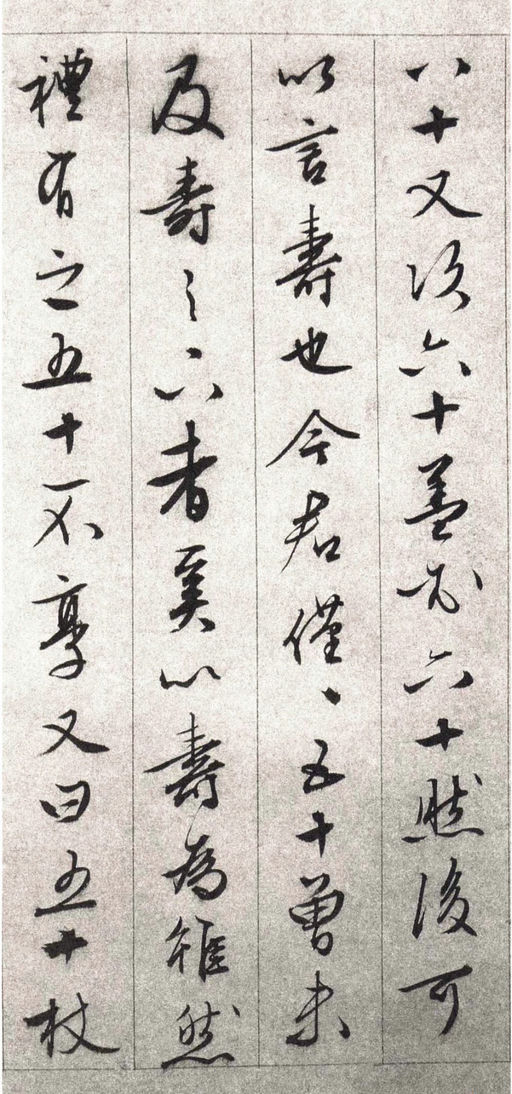 八十又次六十蓋必六十然後可
以言壽也今君僅〻五十曾未
及壽之下者奚以壽為雖然
禮有之五十不毀又曰五十杖